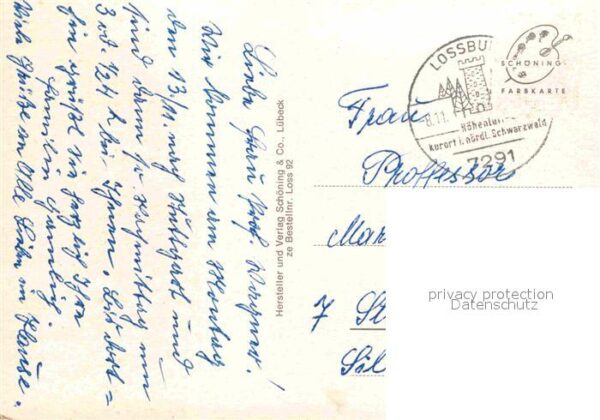 Liebe Frau Prof. Wagner!
Wir kommen am Montag
den 13/11 nach Stuttgart und
sind dann Nachmittag um
3 od. 1/2 4 h bei Ihnen,
Sie grüßt sie herzlich Ihre
Familie
Viele Grüße an Alle Lieben im Hause.
Hersteller und Verlag Schöning & Co., Lübeck
ze Bestellnr. Loss 92
LOSSBU
8.11.
Höhenlu
Kurort i. nördl. Schwarzwald
7291
SCHÖNING
FARBKARTE
Frau
Proffessor
Mar
7 St
Sil
privacy protection
Datenschutz